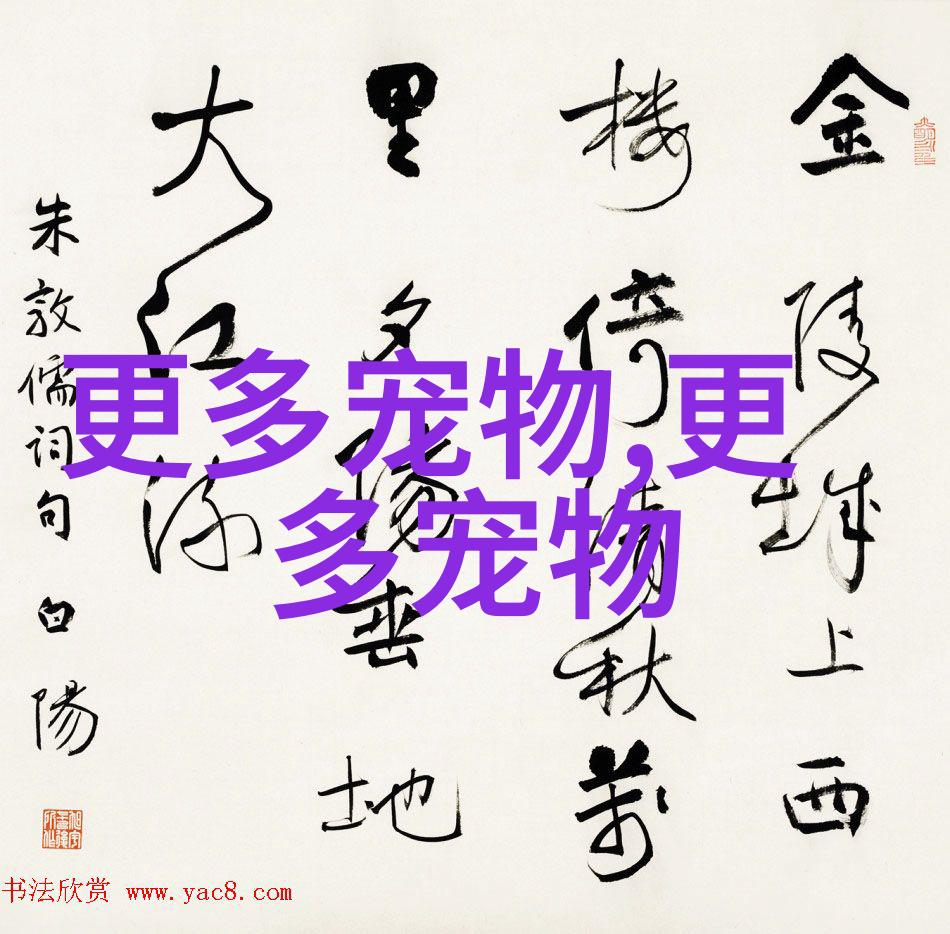 金陵城上西
樓倚清秋萬
里夕陽垂地
大江流
朱敦儒詞句 白陽
更多宠物,更
多宠物
书法欣赏 www.yac8.com